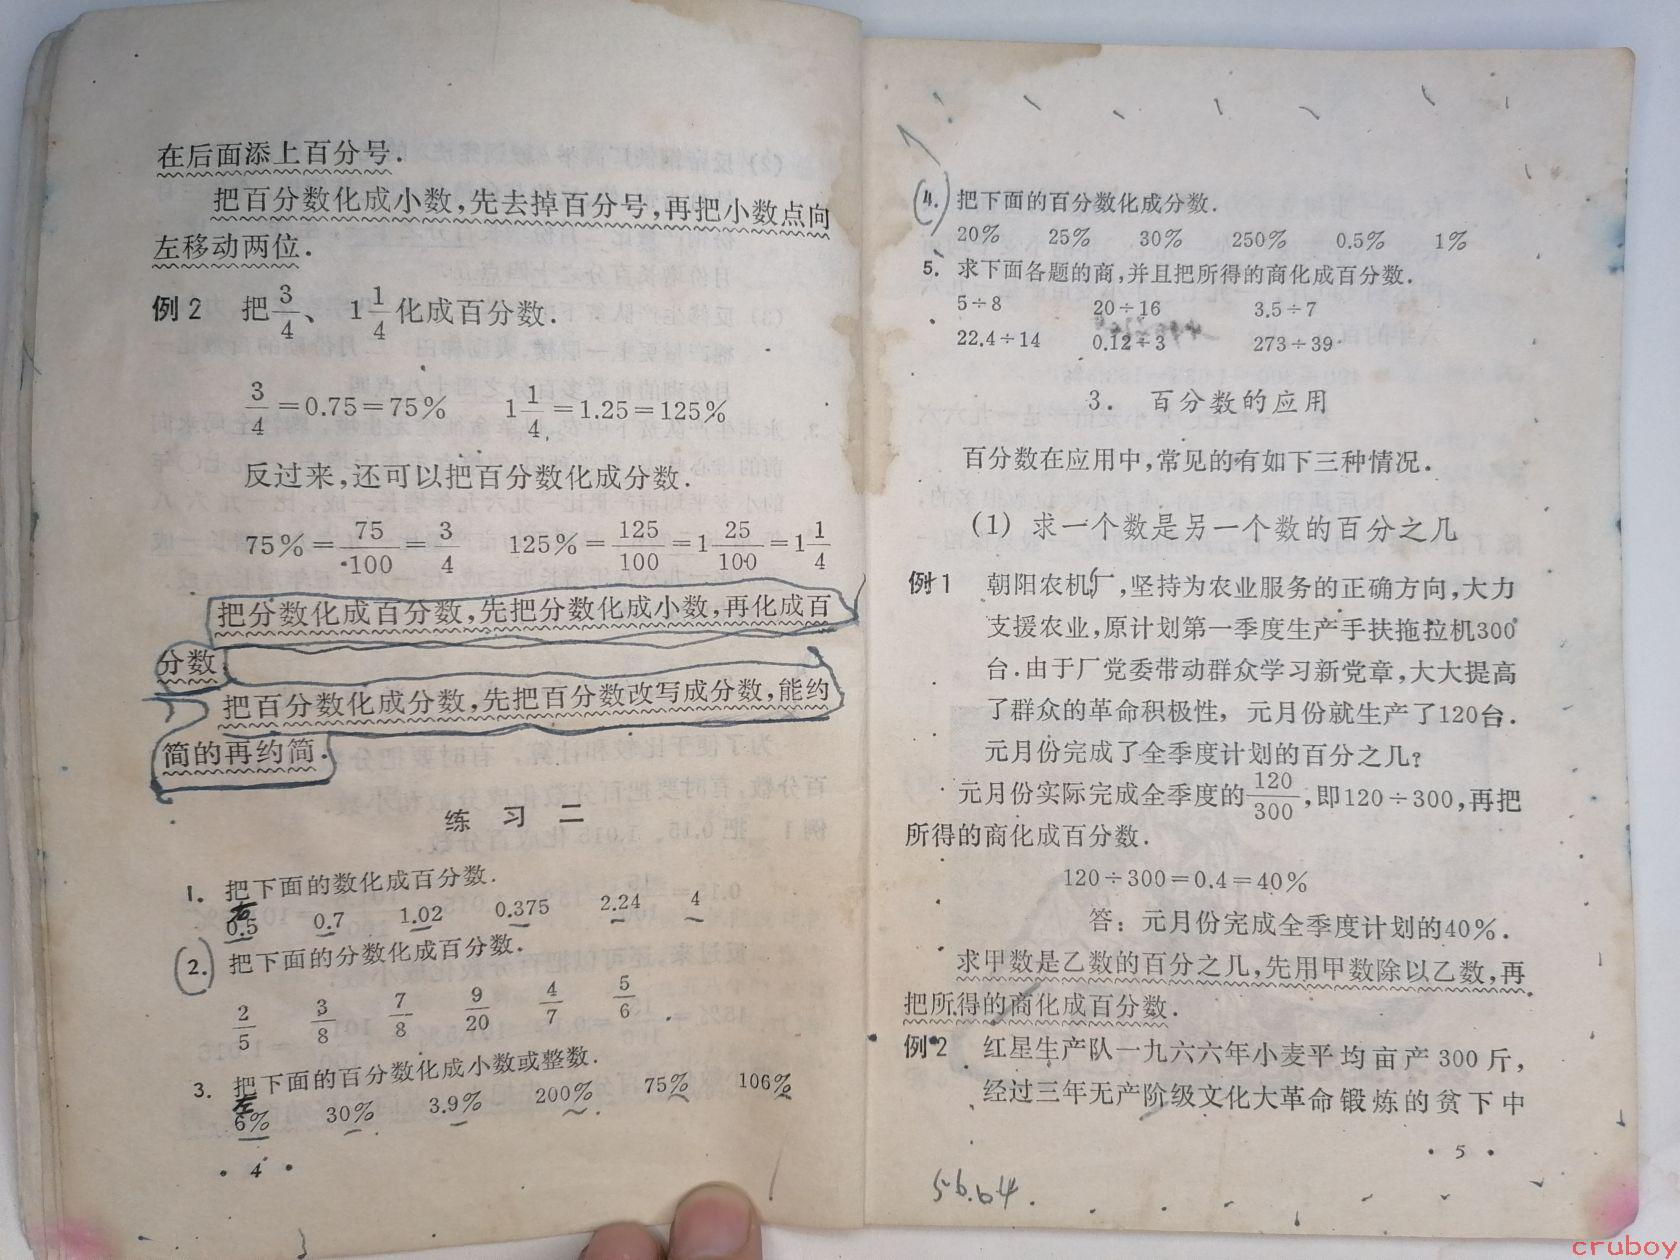 在后面添上百分号.
把百分数化成小数,先去掉百分号,再把小数点向
左移动两位.
例2 把3/4、 1 1/4 化成百分数.
3/4=0.75=75% 1 1/4=1.25=125%
反过来,还可以把百分数化成分数.
75%=75/100=3/4 125%=125/100=1 25/100=1 1/4
把分数化成百分数,先把分数化成小数,再化成百
分数.
把百分数化成分数,先把百分数改写成分数,能约
简的再约简.
练 习 二
1. 把下面的数化成百分数.
右
0.5 0.7 1.02 0.375 2.24 4
2. 把下面的分数化成百分数.
2/5 3/8 7/8 9/20 4/7 5/6
3. 把下面的百分数化成小数或整数.
左
6% 30% 3.9% 200% 75% 106%
· 4 ·
4. 把下面的百分数化成分数.
20% 25% 30% 250% 0.5% 1%
5. 求下面各题的商,并且把所得的商化成百分数.
5÷8 20÷16 3.5÷7
22.4÷14 0.12÷3 273÷39
3. 百分数的应用
百分数在应用中,常见的有如下三种情况.
(1) 求一个数是另一个数的百分之几
例1 朝阳农机厂,坚持为农业服务的正确方向,大力
支援农业,原计划第一季度生产手扶拖拉机300
台.由于厂党委带动群众学习新党章,大大提高
了群众的革命积极性, 元月份就生产了120台.
元月份完成了全季度计划的百分之几?
元月份实际完成全季度的120/300,即120÷300,再把
所得的商化成百分数.
120÷300=0.4=40%
答: 元月份完成全季度计划的40%.
求甲数是乙数的百分之几,先用甲数除以乙数,再
把所得的商化成百分数.
例2 红星生产队一九六六年小麦平均亩产300斤,
经过三年无产阶级文化大革命锻炼的贫下中
· 5 ·
56.64.
cruboy